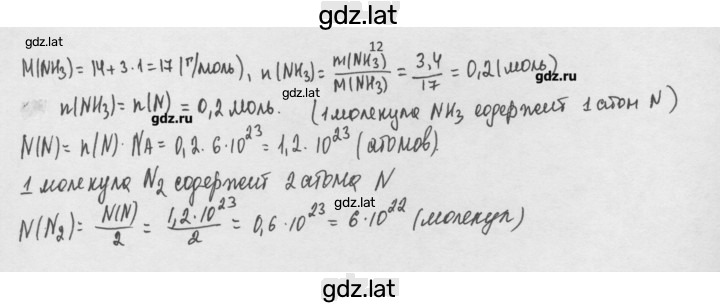 gdz.lat
gdz.lat
M(NH₃) = 14 + 3·1 = 17 (г/моль), n(NH₃) = m(NH₃)/M(NH₃) = 3,4/17 = 0,2 (моль)
12
gdz.ru
gdz.lat
n(NH₃) = n(N) = 0,2 моль. (1 молекула NH₃ содержит 1 атом N)
gdz.ru
N(N) = n(N)·Nᴀ = 0,2·6·10²³ = 1,2·10²³ (атомов).
1 молекула N₂ содержит 2 атома N
N(N₂) = N(N)/2 = 1,2·10²³/2 = 0,6·10²³ = 6·10²² (молекул)
gdz.lat
gdz.lat